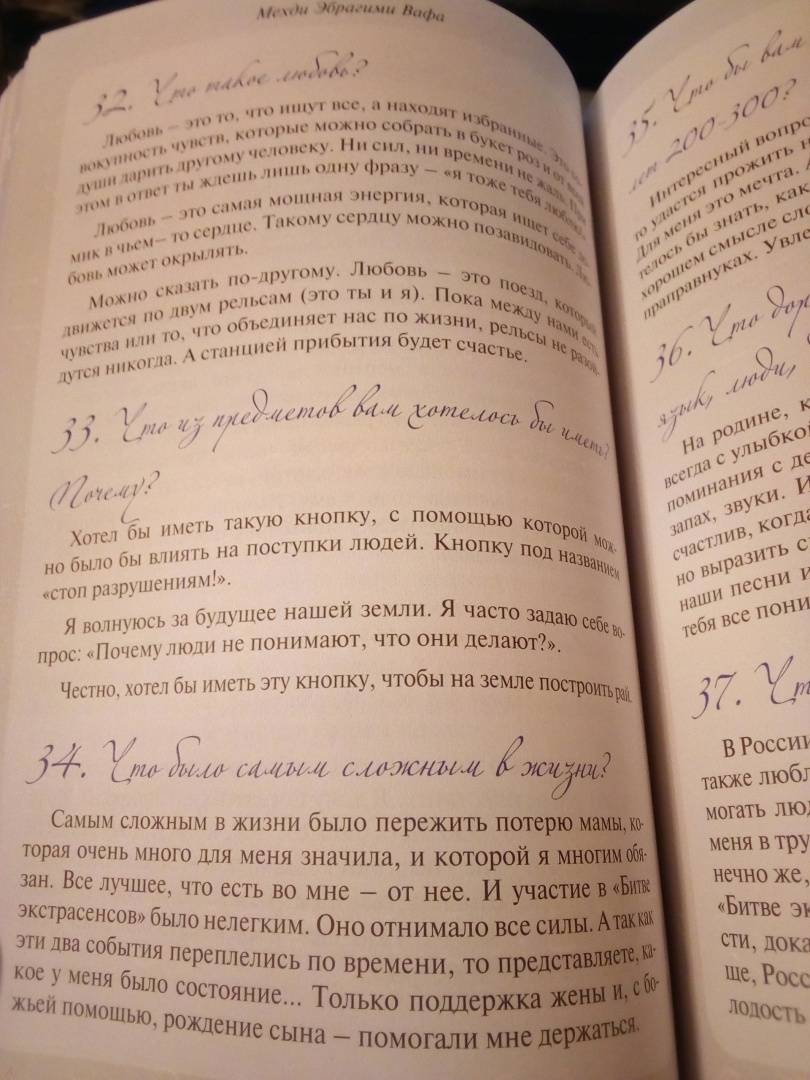 Мехди Эбрагими Вафа
32. Что такое любовь?
Любовь – это то, что ищут все, а находят избранные. Это со-
вокупность чувств, которые можно собрать в букет роз и от всей
души дарить другому человеку. Ни сил, ни времени не жаль. При
этом в ответ ты ждешь лишь одну фразу – «я тоже тебя люблю».
Любовь – это самая мощная энергия, которая ищет себе до-
мик в чьем– то сердце. Такому сердцу можно позавидовать. Лю-
бовь может окрылять.
Можно сказать по-другому. Любовь – это поезд, который
движется по двум рельсам (это ты и я). Пока между нами есть
чувства или то, что объединяет нас по жизни, рельсы не разой-
дутся никогда. А станцией прибытия будет счастье.
33. Что из предметов вам хотелось бы иметь?
Почему?
Хотел бы иметь такую кнопку, с помощью которой мож-
но было бы влиять на поступки людей. Кнопку под названием
«стоп разрушениям!».
Я волнуюсь за будущее нашей земли. Я часто задаю себе во-
прос: «Почему люди не понимают, что они делают?».
Честно, хотел бы иметь эту кнопку, чтобы на земле построить рай.
34. Что было самым сложным в жизни?
Самым сложным в жизни было пережить потерю мамы, ко-
торая очень много для меня значила, и которой я многим обя-
зан. Все лучшее, что есть во мне – от нее. И участие в «Битве
экстрасенсов» было нелегким. Оно отнимало все силы. А так как
эти два события переплелись по времени, то представляете, ка-
кое у меня было состояние... Только поддержка жены и, с бо-
жьей помощью, рождение сына – помогали мне держаться.
35. Что бы вам
лет 200-300?
Интересный вопро
то удастся прожить и
Для меня это мечта. А
телось бы знать, как
хорошем смысле сло
праправнуках. Увле
36. Что дор
язык, люди,
На родине, к
всегда с улыбкой
поминания с де
запах, звуки. И
счастлив, когда
но выразить с
наши песни и
тебя все пони
37. Чт
В России
также любл
могать люд
меня в тру
нечно же,
«Битве эк
сти, дока
ще, Росс
лодость